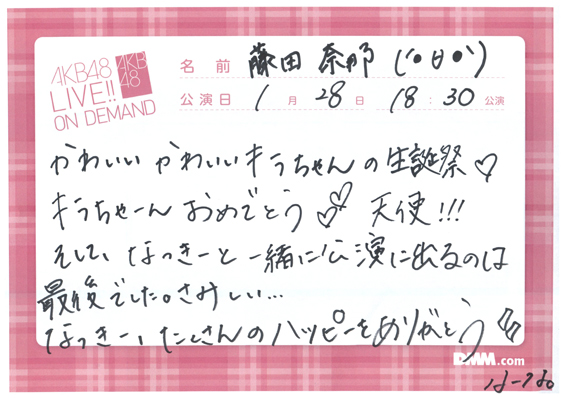 AKB48
LIVE!!
ON DEMAND
AKB
48
名前 藤田 奈那 (´• ㅂ •`)
公演日 1月28日 18:30公演
かわいい かわいいキラちゃんの生誕祭♡
キラちゃーん おめでとう♡♡ 天使!!!
そして、なっきーと一緒に公演に出るのは
最後でした。さみしい…
なっきー、たくさんのハッピーをありがとう
DMM.com